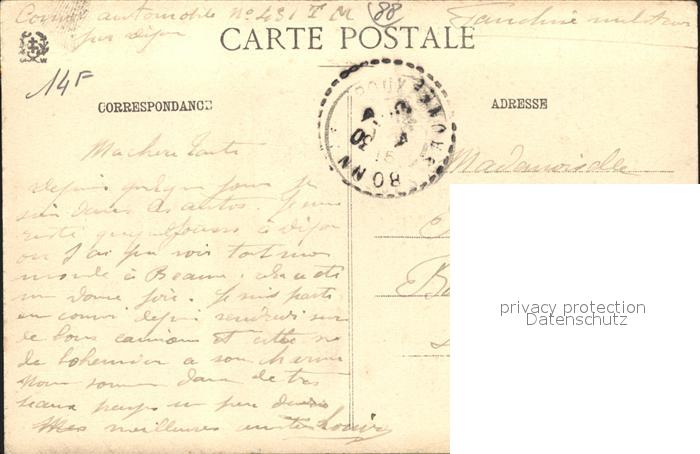 Convoi automobile Nº 491 T M (88) Franchise militaire
par Dijon
CARTE POSTALE
14F
CORRESPONDANCE
ADRESSE
Ma chère Tante
Mademoiselle
Depuis quelques jours je
suis dans les autos. Je suis
resté quelques jours à Dijon
où j'ai pu voir tout mon
monde à Beaune. cela a été
une bonne joie. Je suis parti
en convoi depuis vendredi sur
de bons camions et cette vie
de bohémien a son charme
Nous sommes dans de très
beaux pays un peu
Mes meilleures amitiés Louis
privacy protection
Datenschutz